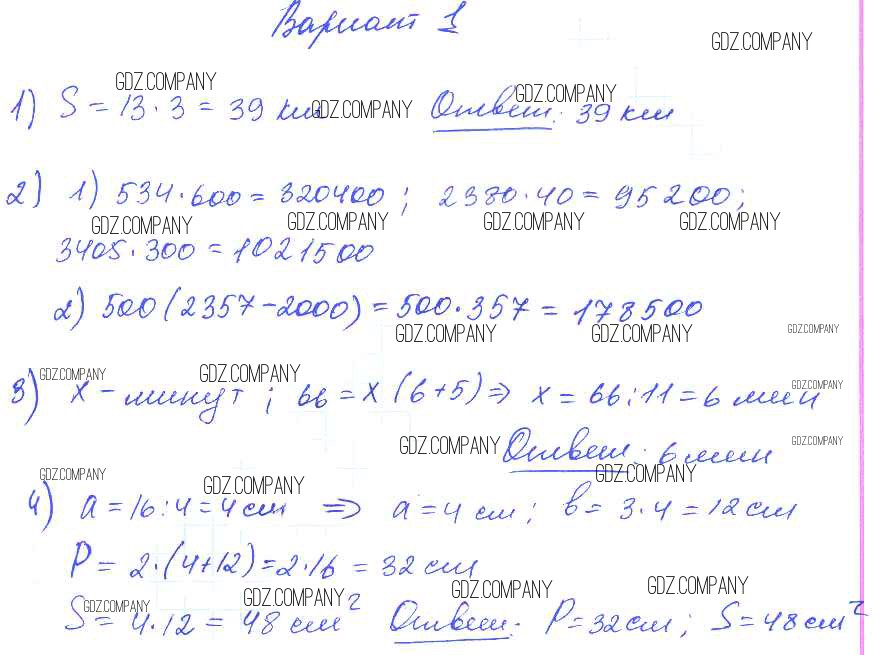 Вариант 1
GDZ.COMPANY
GDZ.COMPANY GDZ.COMPANY
1) S = 13 · 3 = 39 км GDZ.COMPANY Ответ: 39 км
2) 1) 534 · 600 = 320400 ; 2380 · 40 = 95200 ;
GDZ.COMPANY GDZ.COMPANY GDZ.COMPANY GDZ.COMPANY
3405 · 300 = 1021500
2) 500 (2357 - 2000) = 500 · 357 = 178500
GDZ.COMPANY GDZ.COMPANY GDZ.COMPANY
GDZ.COMPANY GDZ.COMPANY GDZ.COMPANY
3) x - минут ; 66 = x (6 + 5) ⇒ x = 66 : 11 = 6 мин
GDZ.COMPANY Ответ: 6 мин GDZ.COMPANY
GDZ.COMPANY GDZ.COMPANY GDZ.COMPANY
4) a = 16 : 4 = 4 см ⇒ a = 4 см ; в = 3 · 4 = 12 см
P = 2 · (4 + 12) = 2 · 16 = 32 см
GDZ.COMPANY GDZ.COMPANY GDZ.COMPANY GDZ.COMPANY
S = 4 · 12 = 48 см² Ответ: P = 32 см ; S = 48 см²